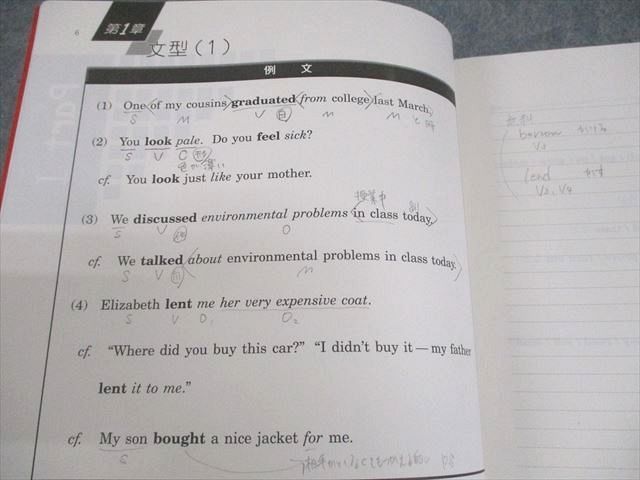 6
第1章
文型(1)
例 文
(1) One of my cousins graduated from college last March.
S M V 自 M M
(2) You look pale. Do you feel sick?
S V C
cf. You look just like your mother.
授業中 副
(3) We discussed environmental problems in class today.
S V 他 O
cf. We talked about environmental problems in class today.
S V 自 M
(4) Elizabeth lent me her very expensive coat.
S V O₁ O₂
cf. “Where did you buy this car?” “I didn't buy it — my father
lent it to me.”
cf. My son bought a nice jacket for me.
S
無料
borrow かりる
V3
lend かす
V3, V4
Part 1